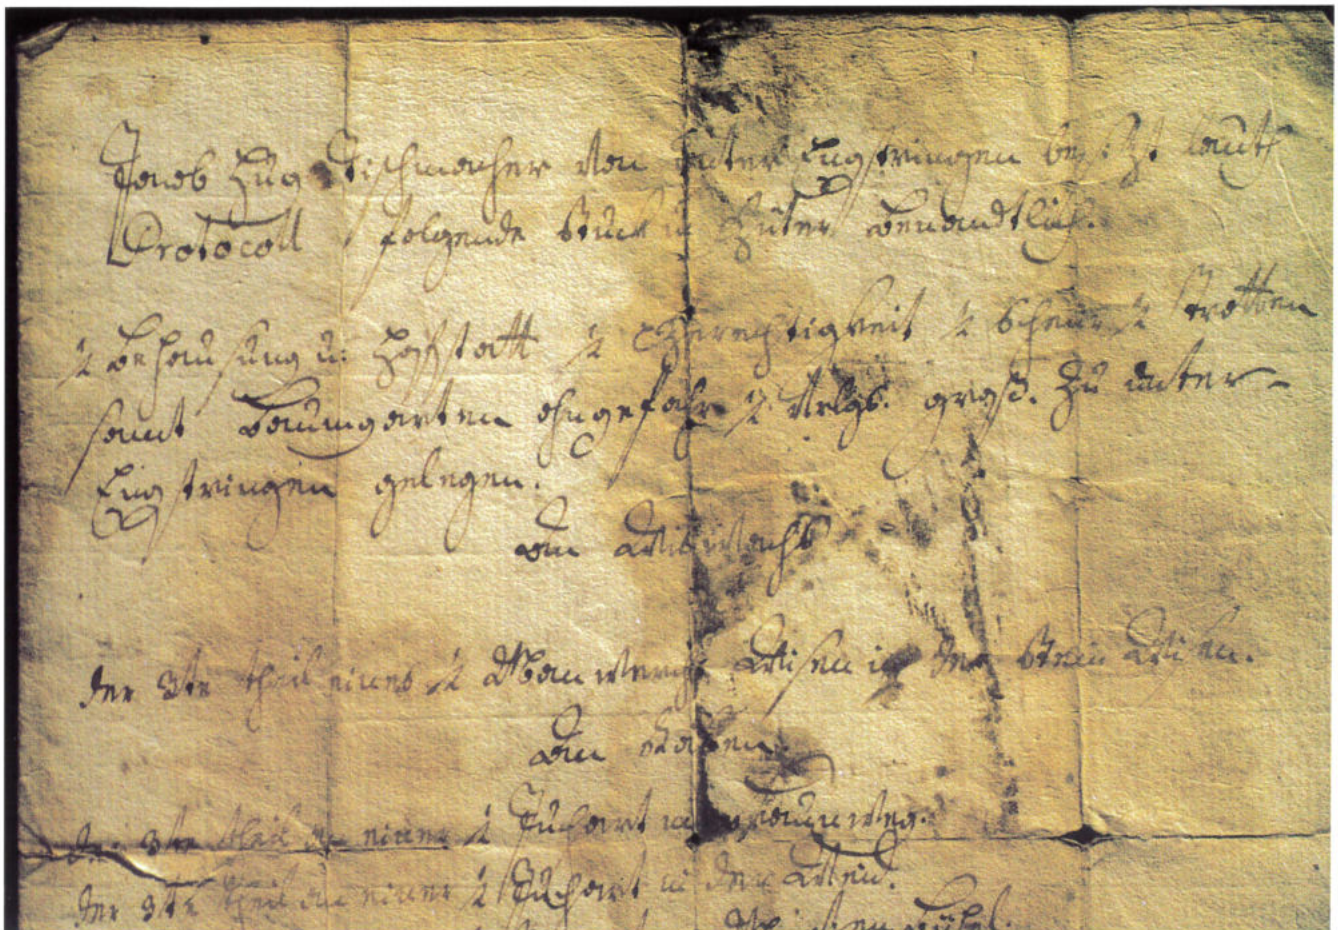 Jacob Hug Tischmacher von Unter Engstringen besizt lauth
Protocoll folgende Stuck u Güter benandtlich.
½ Behausung u: Hoffstatt ½ Ehgerechtigkeit ½ Scheur ½ Trotten
samt Baumgarten ohngefahr ½ Vrlgs. groß. Zu Unter-
Engstringen gelegen.
An Wiswachs
Der 3te theil eines ½ Manwerch Wisen in der Stein Wisen.
An Räben
Der 3te theil an einer ½ Juchart im
Der 3te theil an einer ½ Juchart in der Weid.